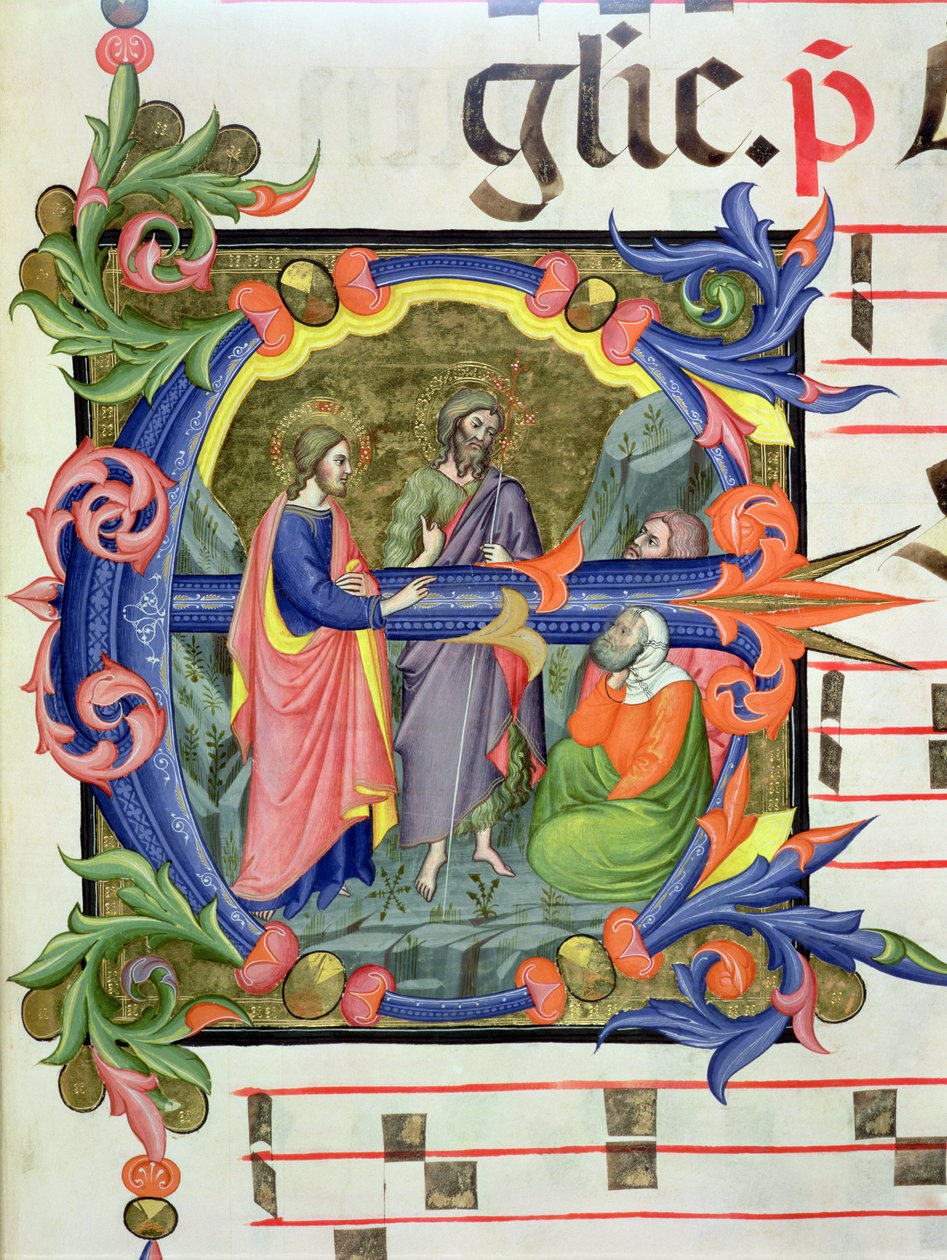 glie. p̄
E